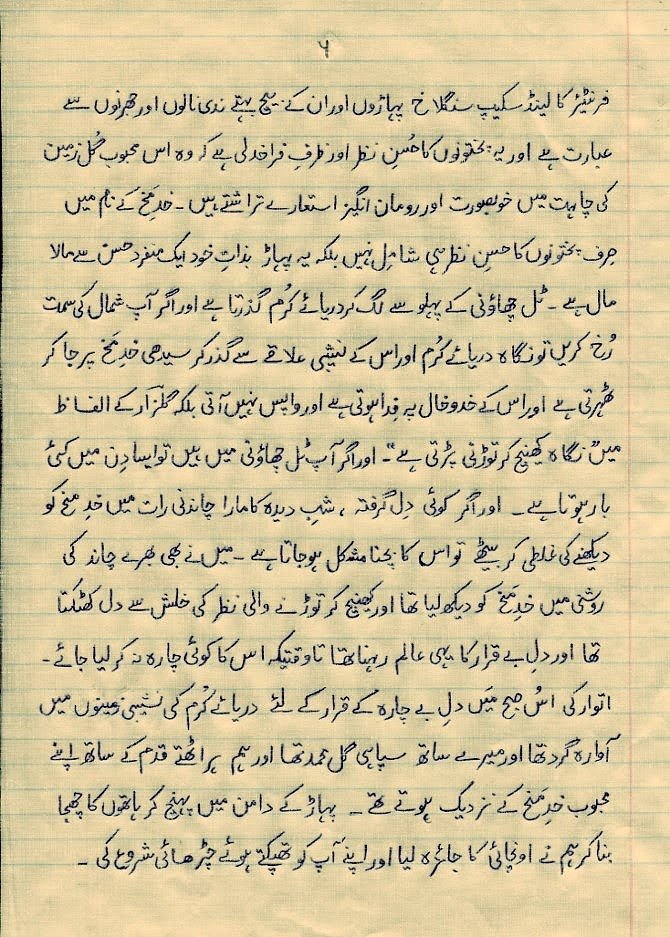 ۶
فرنٹیئر کا لینڈ سکیپ سنگلاخ پہاڑوں اور ان کے بیچ بہتے ندی نالوں اور جھرنوں سے
عبارت ہے اور یہ پختونوں کا حُسنِ نظر اور ظرفِ فراخدلی ہے کہ وہ اس محبوب گُل زمین
کی چاہت میں خوبصورت اور رومان انگیز استعارے تراشتے ہیں ۔ خدِ مَخ کے نام میں
صِرف پختونوں کا حسنِ نظر ہی شامل نہیں بلکہ یہ پہاڑ بذاتِ خود ایک منفرد حسن سے مالا
مال ہے ۔ ٹل چھاؤنی کے پہلو سے لگ کر دریائے کُرم گذرتا ہے اور اگر آپ شمال کی سمت
رُخ کریں تو نگاہ دریائے کُرم اور اس کے نشیبی علاقے سے گذر کر سیدھی خدِ مَخ پر جا کر
ٹھہرتی ہے اور اس کے خدوخال پہ فِدا ہوتی ہے اور واپس نہیں آتی بلکہ گلزار کے الفاظ
میں " نگاہ کھینچ کر توڑنی پڑتی ہے "۔ اور اگر آپ ٹل چھاؤنی میں ہیں تو ایسا دِن میں کئی
بار ہوتا ہے ۔ اور اگر کوئی دِل گرفتہ ، شب دیدہ کا مارا چاندنی رات میں خدِ مَخ کو
دیکھنے کی غلطی کر بیٹھے تو اس کا بچنا مشکل ہو جاتا ہے ۔ میں نے بھی بھرے چاند کی
روشنی میں خدِ مَخ کو دیکھ لیا تھا اور کھینچ کر توڑنے والی نظر کی خلش سے دل کھٹکتا
تھا اور دلِ بے قرار کا یہی عالم رہنا تھا تاوقتیکہ اس کا کوئی چارہ نہ کر لیا جائے ۔
اتوار کی اُس صبح مَیں دلِ بے چارہ کے قرار کے لئے دریائے کُرم کی نشیبی زمینوں میں
آوارہ گرد تھا اور میرے ساتھ سپاہی گل محمد تھا اور ہم ہر اٹھتے قدم کے ساتھ اپنے
محبوب خدِ مَخ کے نزدیک ہوتے تھے ۔ پہاڑ کے دامن میں پہنچ کر ہاتھوں کا چھجا
بنا کر ہم نے اونچائی کا جائزہ لیا اور اپنے آپ کو تھپکتے ہوئے چڑھائی شروع کی ۔